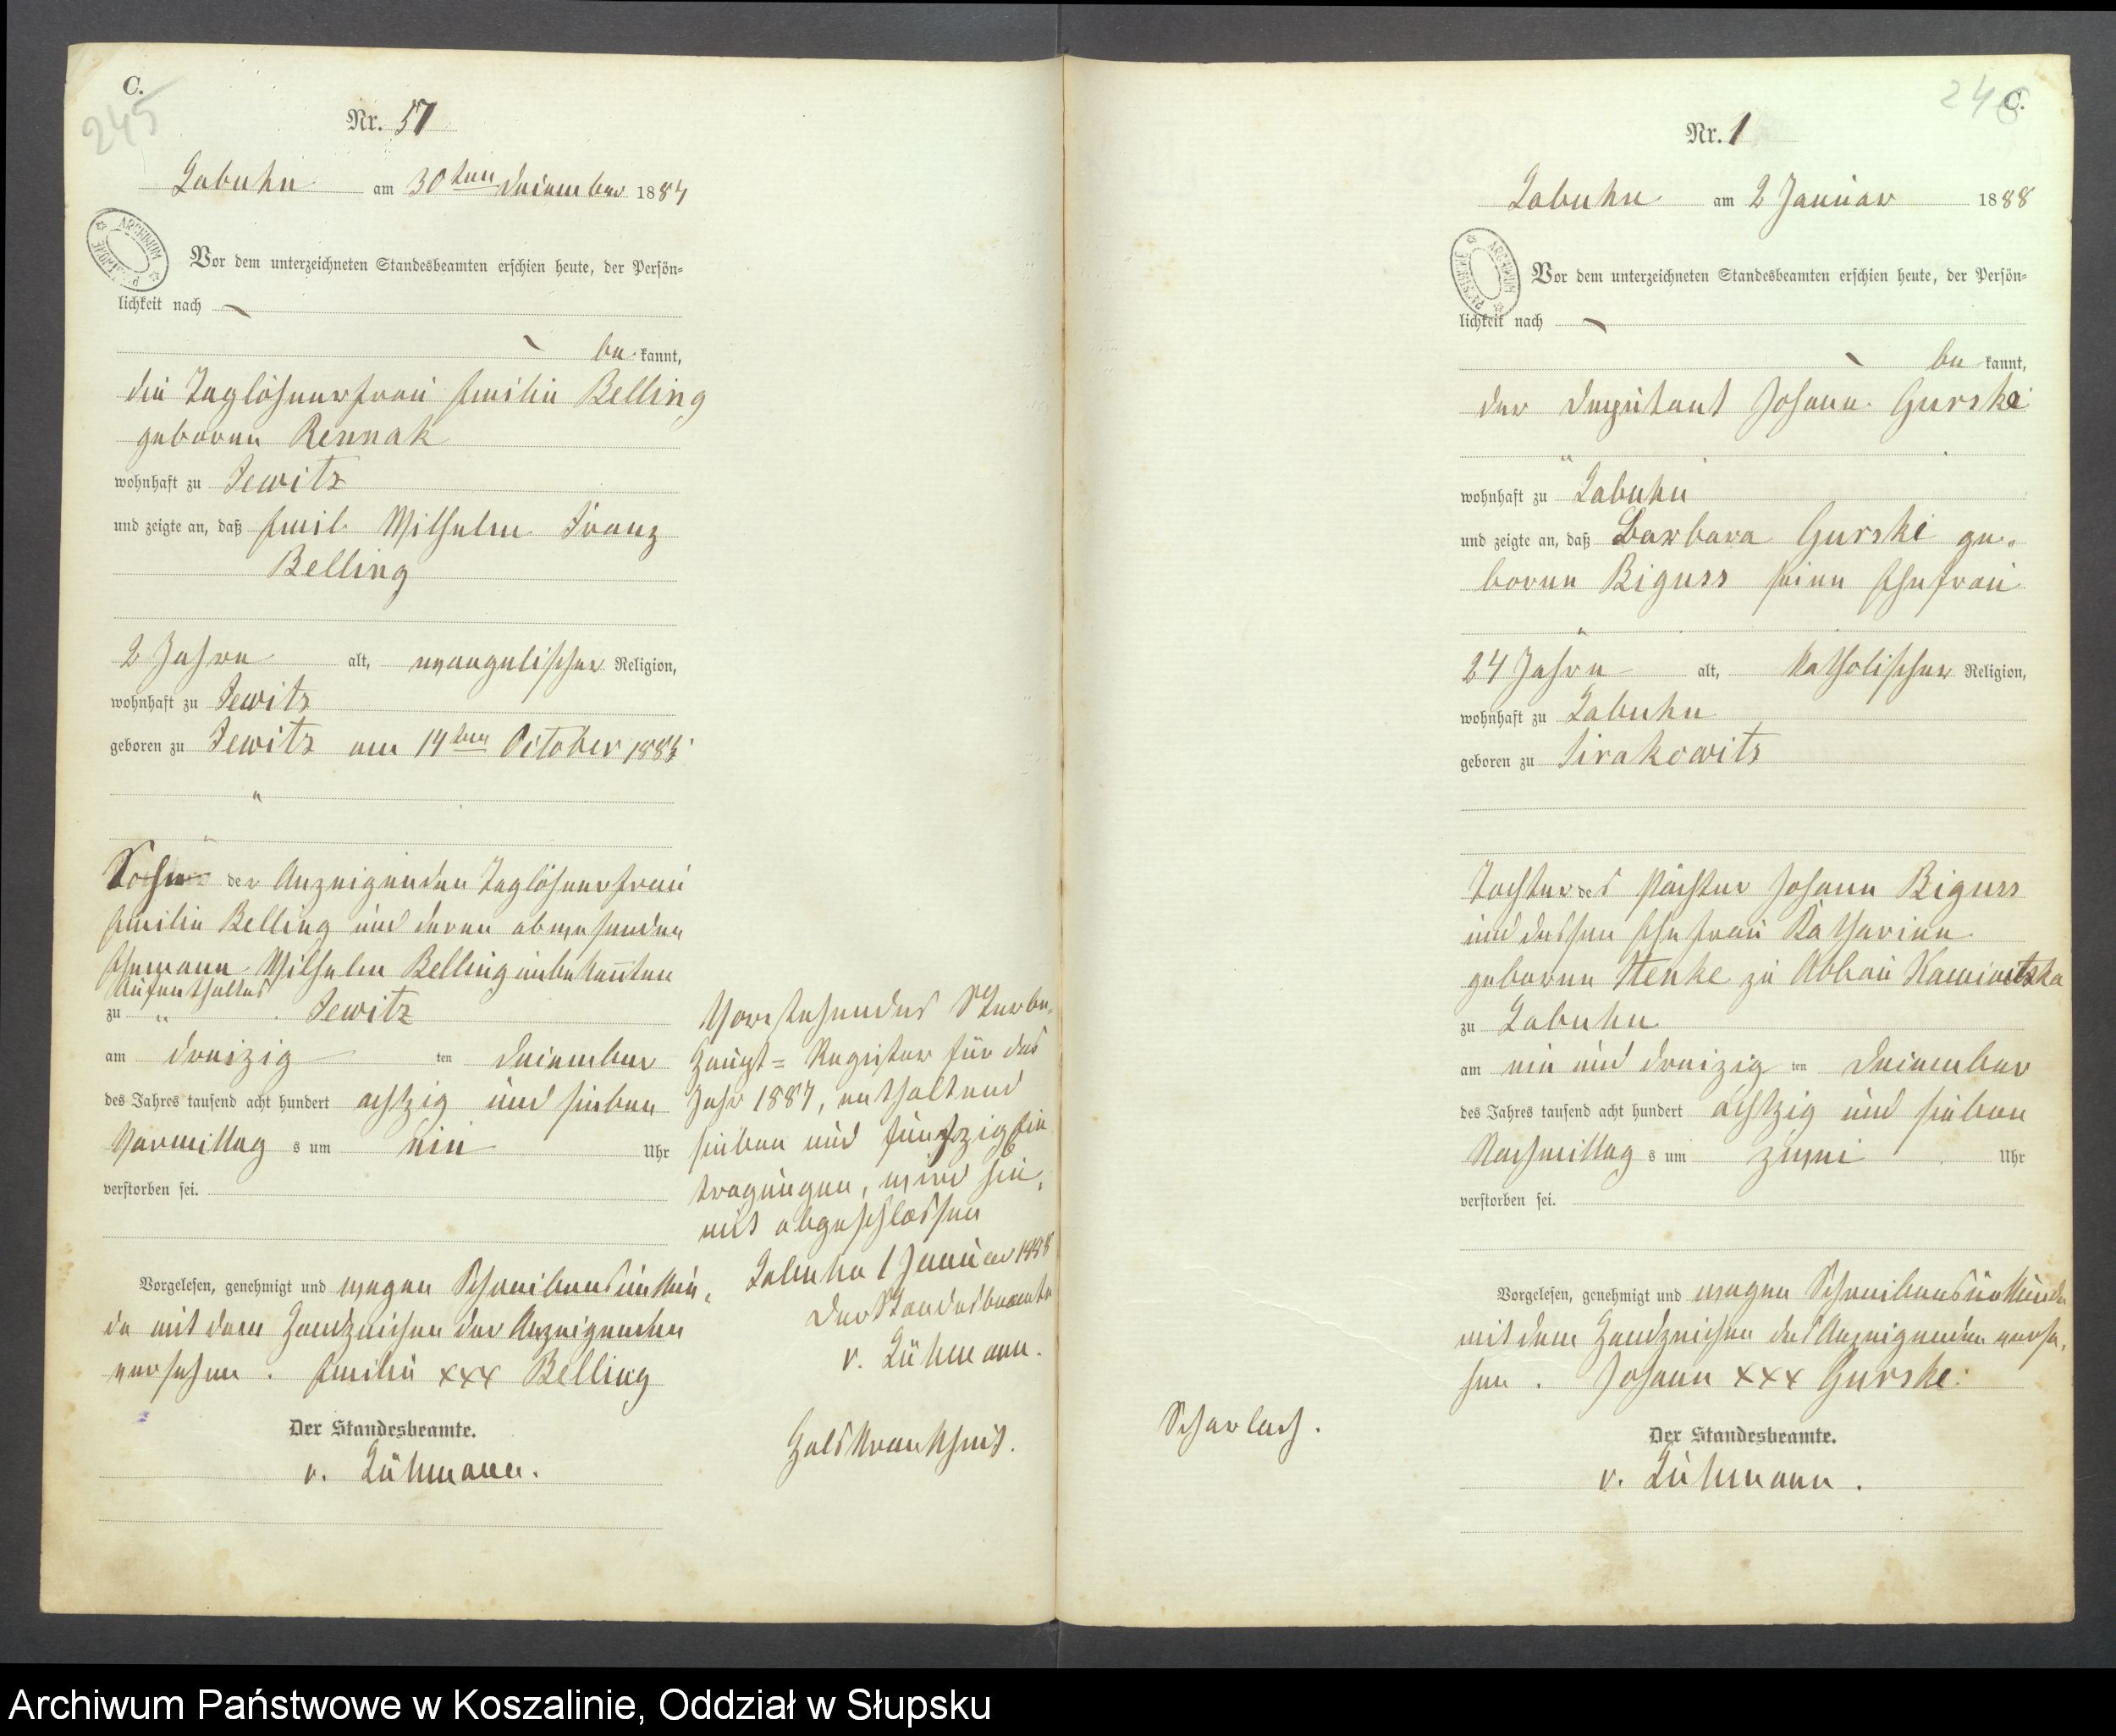 C.
245
Nr. 57
Labuhn am 30ten December 1887
ARCHIWUM
Vor dem unterzeichneten Standesbeamten erschien heute, der Persön-
lichkeit nach
be kannt,
die Taglöhnerfrau Emilie Belling
geborene Rennak
wohnhaft zu Jewitz
und zeigte an, daß Emil Wilhelm Franz
Belling
2 Jahre alt, evangelischer Religion,
wohnhaft zu Jewitz
geboren zu Jewitz am 14ten October 1885
Sohn der Anzeigenden Taglöhnerfrau
Emilie Belling und deren abwesenden
Ehemann Wilhelm Belling unbekannten
Aufenthaltes
zu Jewitz
am dreizig ten December
des Jahres tausend acht hundert achtzig und sieben
Vormittag s um ein Uhr
verstorben sei.
Vorgelesen, genehmigt und wegen Schreibensunkun-
de mit dem Handzeichen der Anzeigenden
versehen. Emilie xxx Belling
Der Standesbeamte.
v. Lühmann.
Vorstehendes Sterbe-
Haupt= Register für das
Jahr 1887, enthaltend
sieben und fünfzig Ein
tragungen, wird hie-
mit abgeschlossen
Labuhn 1 Januar 1888
Der Standesbeamte
v. Lühmann.
Halskrankheit.
246
C.
Nr. 1
Labuhn am 2 Januar 1888
ARCHIWUM
Vor dem unterzeichneten Standesbeamten erschien heute, der Persön-
lichkeit nach
be kannt,
der Deputant Johann Gurski
wohnhaft zu Labuhn
und zeigte an, daß Barbara Gurski ge-
borene Biguss seine Ehefrau
24 Jahre alt, katholischer Religion,
wohnhaft zu Labuhn
geboren zu Sirakowitz
Tochter des Pächter Johann Biguss
und dessen Ehefrau Katharine
geborene Stenke zu Abbau
zu Labuhn
am ein und dreizig ten December
des Jahres tausend acht hundert achtzig und sieben
Nachmittag s um zwei Uhr
verstorben sei.
Vorgelesen, genehmigt und wegen Schreibensunkunde
mit dem Handzeichen des Anzeigenden verse-
hen. Johann xxx Gurske.
Der Standesbeamte.
v. Lühmann.
Scharlach.
Archiwum Państwowe w Koszalinie, Oddział w Słupsku